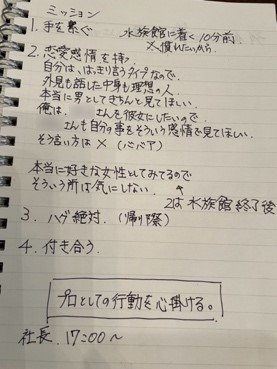 ミッション
1. 手を繋ぐ 水族館に着く10分前
×慣れたいから
2. 恋愛感情を持つ
自分は、はっきり言うタイプなので、
外見も話した中身も理想の人、
本当に男としてきちんと見てほしい。
俺は、 さんを彼女にしたいので
さんも自分の事をそういう感情で見てほしい。
そう言い方は×
本当に好きな女性としてみてるので
そういう所は気にしない。
2は水族館終了後
3. ハグ絶対. (帰り際)
4. 付き合う.
プロとしての行動を心掛ける。
社長. 17:00〜